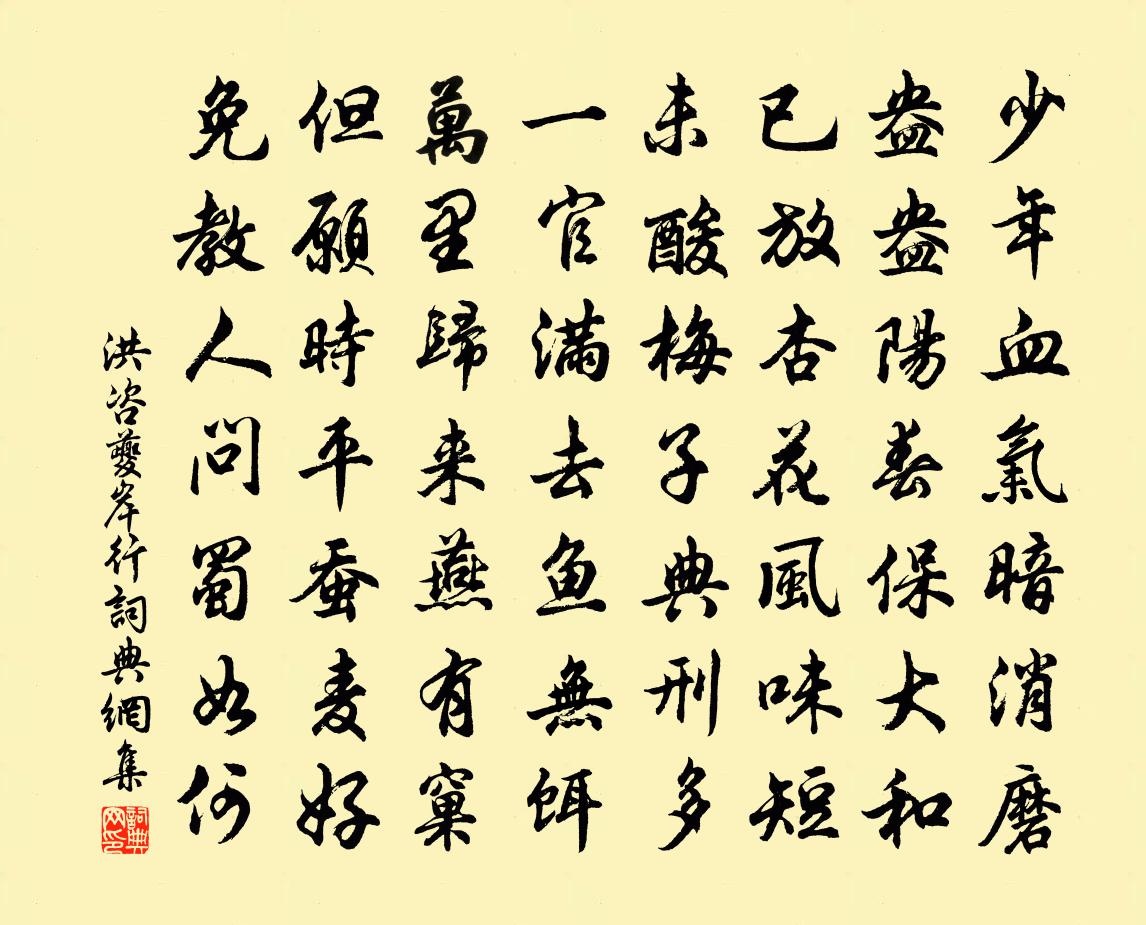 少年血氣暗消磨
盎盎陽春保大和
已放杏花風味短
未酸梅子典刑多
一官滿去魚無餌
萬里歸来燕有窠
但願時平蚕麦好
免教人問蜀如何
洪咨夔岸行詞典網集
詞典网印